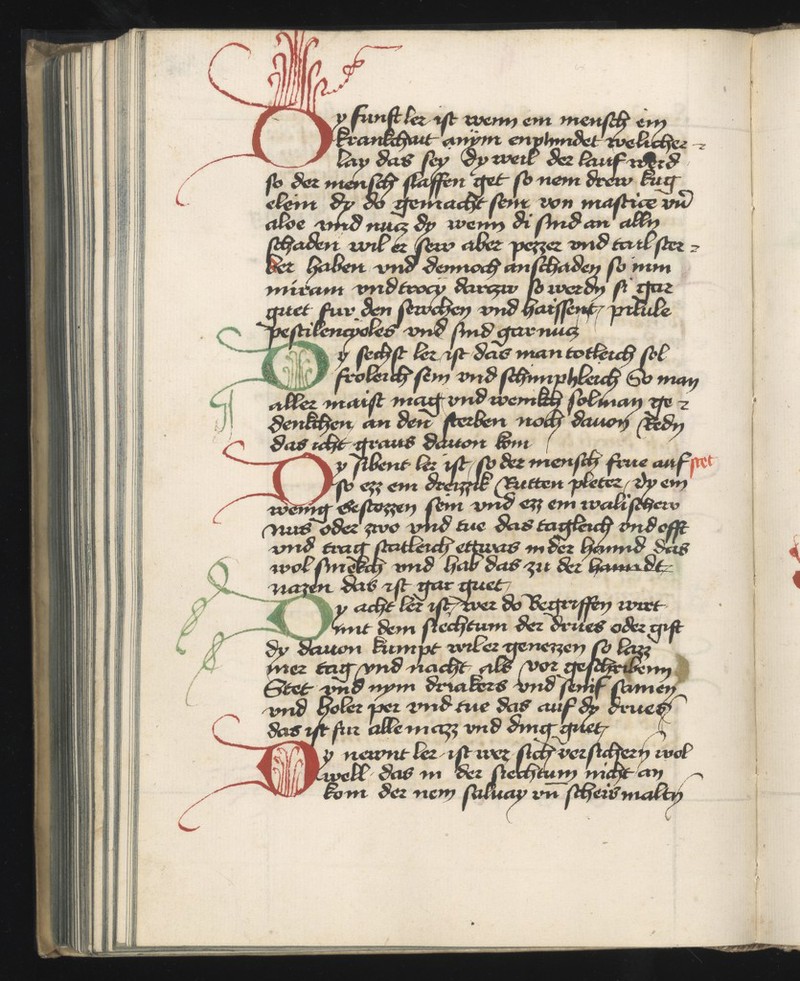 Dy funft ler ist wenn ein mensch ein
krankchait anym enphindet welicher-
lay das sey dy weil der lauf werd
so der mensch slaffen get so nem drew kug
elein dy do gemacht sein von mastice vn̄
aloe vnd nucz dy wenn di sind an alln
schaden wil er sew aber pezzer vnd tail ster-
ker haben vnd dennoch an schaden so nim
mirram vnd trocy darczw so werdn si gar
guet fur den serchen vnd haissent pilule
pestilencyoles vnd sind gar nucz
Dy sechst ler ist das man totleich sol
froleich sein vnd schimphleich So man
aller maist mag vnd wenikch sol man ge-
denkchen an den sterben noch dauon Redn
das icht graus dauon kom
Dy sibent ler ist so der mensch frue auf stet
so ezz ein dreizzik Rutten pleter dy ein
wenig gestozzen sein vnd ezz ein walischew
nus oder zwo vnd tue das tagleich vnd offt
vnd trag statleich ettwas in der hannd das
wol smekch vnd hab das zu der hanndt
nazen das ist gar guet
Dy acht ler ist wer do Begriffen wirt
mit dem siechtum der drues oder gift
dy dauon kumpt wil er genezzen so lazz
mer tag vnd nacht als vor geschribenn
Stet vnd nym driakers vnd senif samen
vnd holer per vnd tue das auf dy drues
das ist fur alle mazz vnd ding guet
Dy newnt ler ist wer sich versichern wol
well das in der siechtum nicht an
kom der nem saluay vn̄ scheismalcn